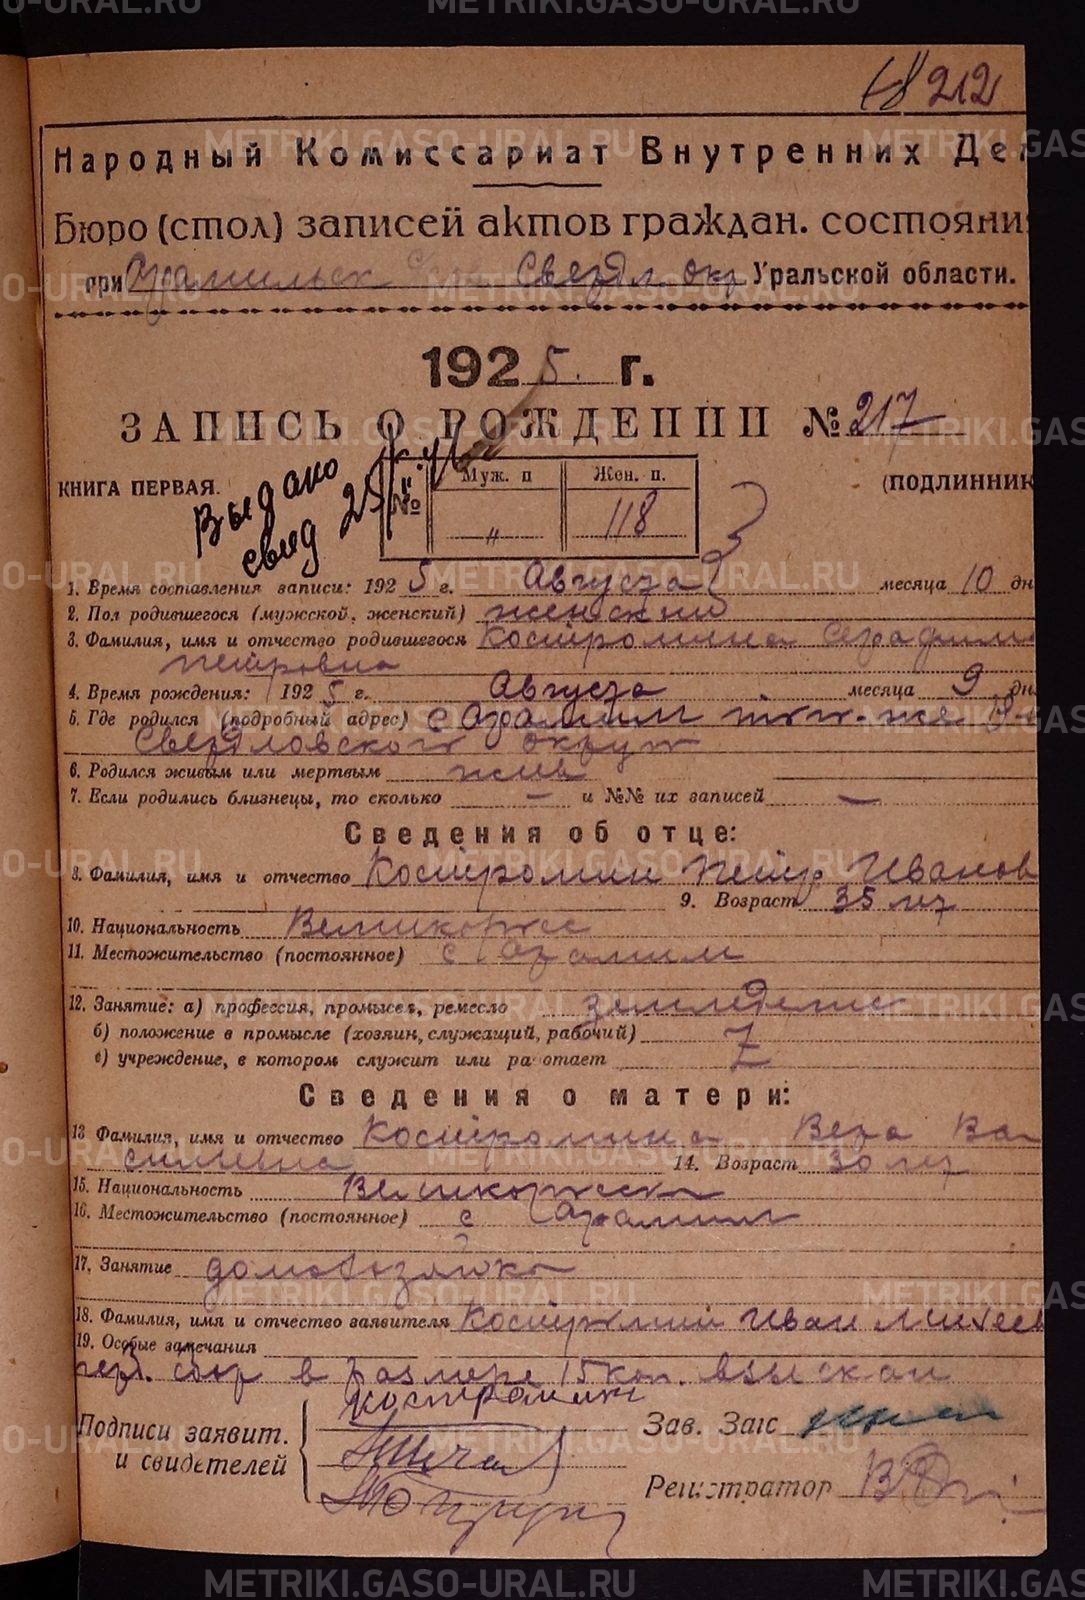 212
Народный Комиссариат Внутренних Дел
Бюро (стол) записей актов граждан. состояния
при Арамильск Свердл. окр Уральской области.
1925 г.
ЗАПИСЬ О РОЖДЕНИИ № 217
КНИГА ПЕРВАЯ. (ПОДЛИННИК
Выдано
свид 25/
№ Муж. п Жен. п.
" 118
1. Время составления записи: 1925 г. Августа месяца 10 дн
2. Пол родившегося (мужской, женский) женский
3. Фамилия, имя и отчество родившегося Костромина Серафима
Петровна
4. Время рождения: 1925 г. Августа месяца 9 дн
5. Где родился (подробный адрес) с Арамили того-же р-
Свердловского округа
6. Родился живым или мертвым жив
7. Если родились близнецы, то сколько — и №№ их записей —
Сведения об отце:
8. Фамилия, имя и отчество Костромин Петр Иванов
9. Возраст 35 лет
10. Национальность Великоросс
11. Местожительство (постоянное) с Арамили
12. Занятие: а) профессия, промысел, ремесло земледелие
б) положение в промысле (хозяин, служащий, рабочий)
в) учреждение, в котором служит или работает
Сведения о матери:
13 Фамилия, имя и отчество Костромина Вера Ва
сильевна 14. Возраст 30 лет
15. Национальность Великоросска
16. Местожительство (постоянное) с Арамили
17. Занятие домохозяйка
18. Фамилия, имя и отчество заявителя Костромин Иван Михеев
19. Особые замечания
сбор в размере 15 коп. взыскан
Подписи заявит. и свидетелей Костромин
Зав. Загс
Регистратор
METRIKI.GASO-URAL.RU